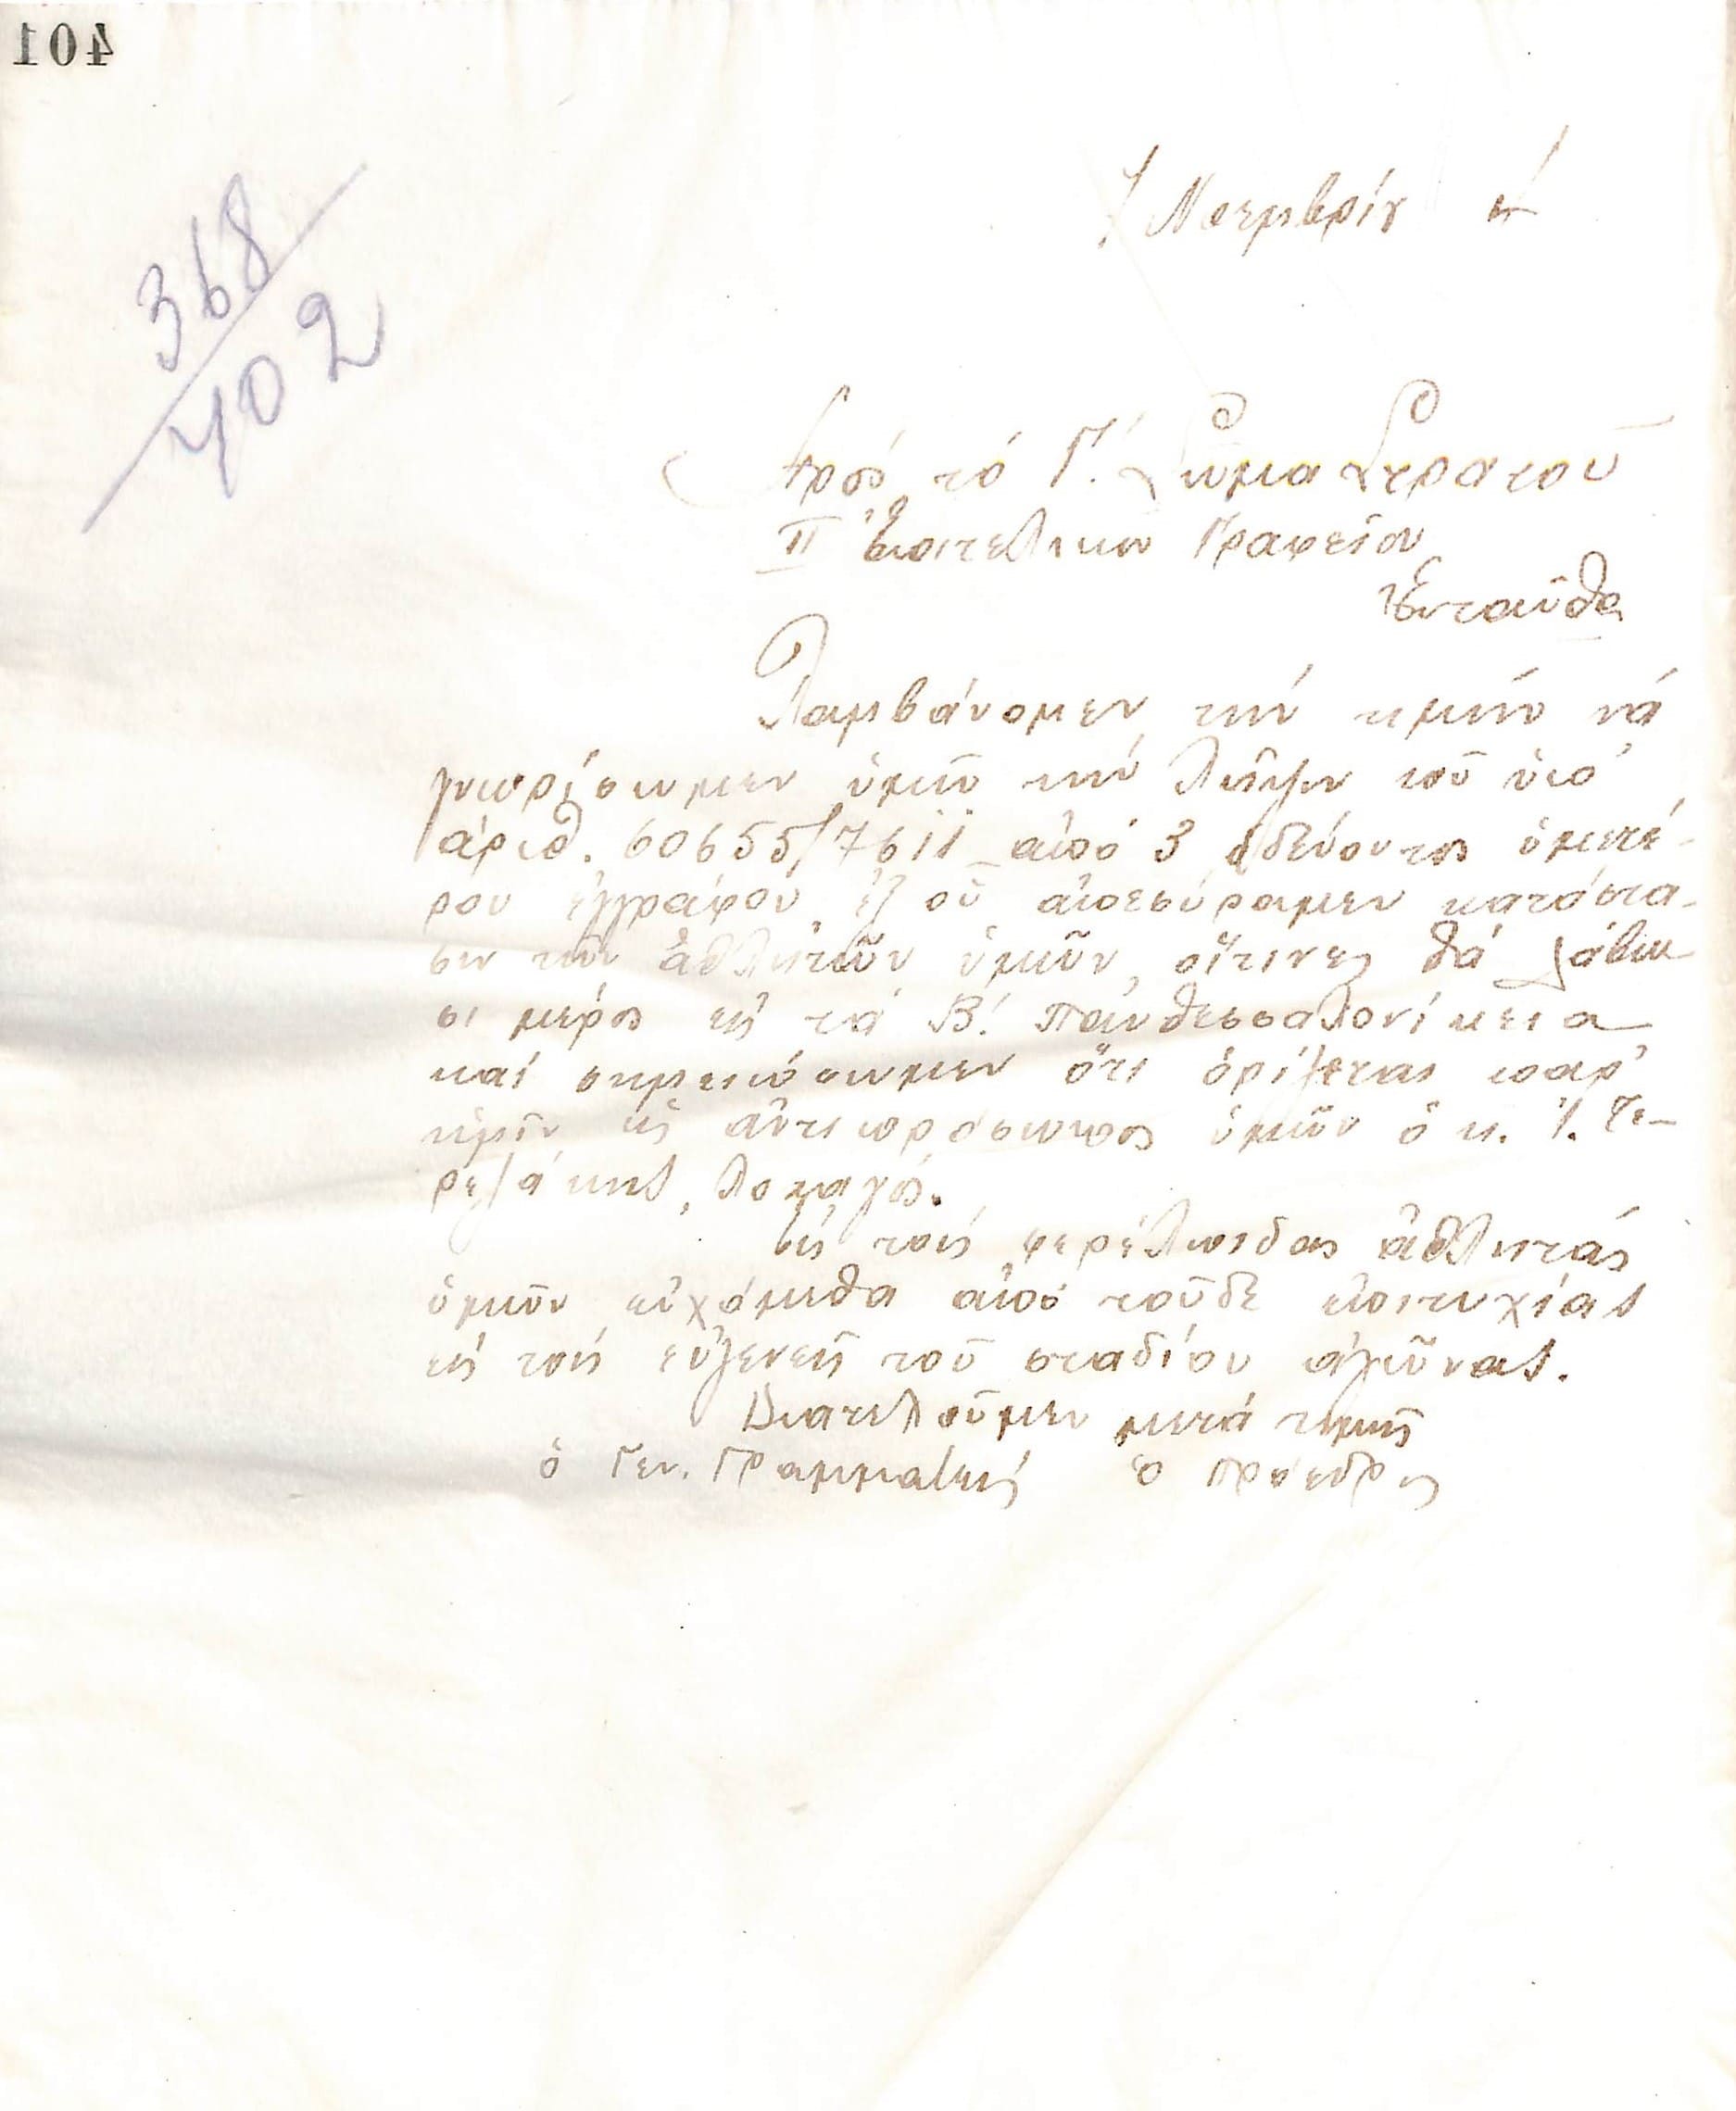 401
368
402
Νοεμβρίου
Πρός τό Γ΄. Σῶμα Στρατοῦ
II Ἐπιτελικόν Γραφεῖον
Ἐνταῦθα
Λαμβάνομεν τήν τιμήν νά
γνωρίσωμεν ὑμῖν τήν λῆψιν τοῦ ὑπ'
ἀριθ. 60655/7611 ἀπό 3 ὁδεύοντος ὑμετέ-
ρου ἐγγράφου ἐξ οὗ ἀπεσύραμεν κατάστα-
σιν τῶν ἀθλητῶν ὑμῶν, οἵτινες θά λάβω-
σι μέρος εἰς τά Β΄. Πανθεσσαλονίκεια
καί σημειώσωμεν ὅτι ὁρίζεται παρ'
ἡμῖν ὡς ἀντιπρόσωπος ὑμῶν ὁ κ. Ἰ. Τε-
ρεζάκης, λοχαγός.
Εἰς τούς φερέλπιδας ἀθλητάς
ὑμῶν εὐχόμεθα ἀπό τοῦδε ἐπιτυχίας
εἰς τούς εὐγενεῖς τοῦ σταδίου ἀγῶνας.
Διατελοῦμεν μετά τιμῆς
ὁ Γεν. Γραμματεύς ὁ Πρόεδρος